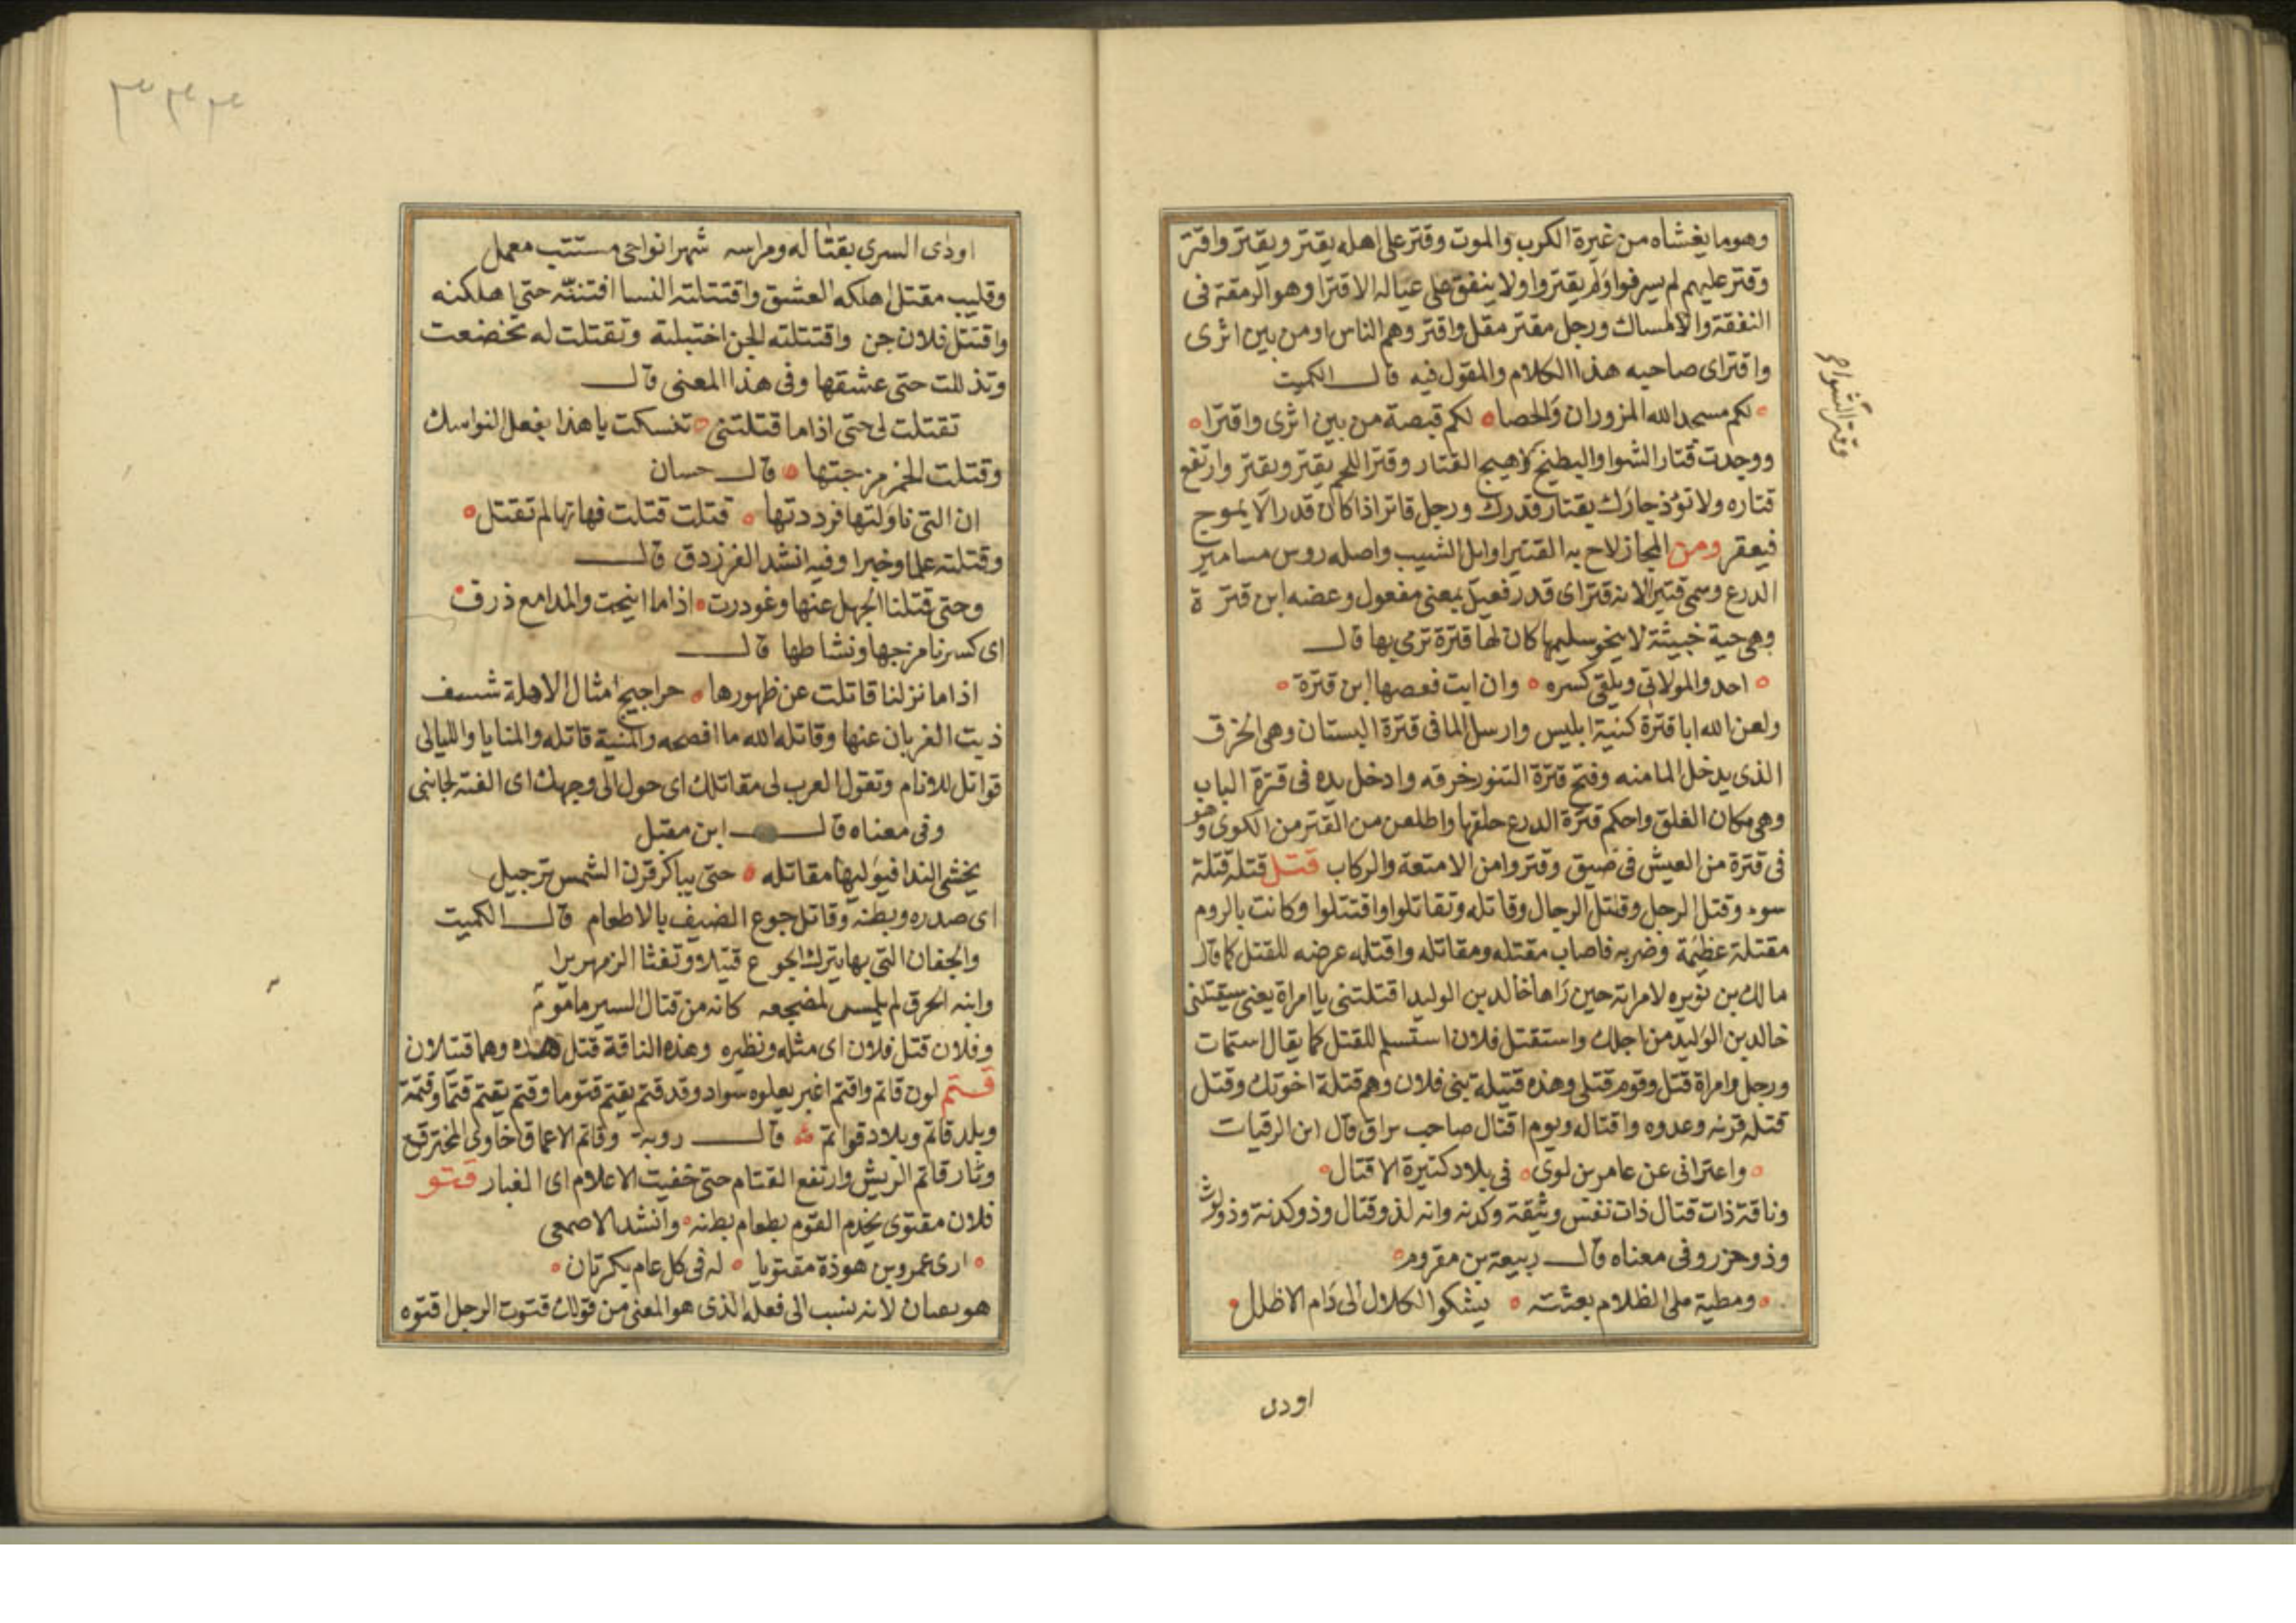 وهو ما يغشاه من غبرة الكرب والموت وقتر على اهله يقتر ويقتر واقتر
وقتر عليهم لم يسرفوا ولم يقتروا ولا ينفق على عياله الا قترا وهو الرمقة فى
النفقة والامساك ورجل مقتر مقل واقتر وهم الناس او من بين اثرى
واقتر اى صاحبه هذا الكلام والمقول فيه قال الكميت
لكم مسجد الله المزوران والحصا لكم قبصة من بين اثرى واقترا
ووجدت قتار الشوا والبطيخ كاهيج القتار وقتر اللحم يقتر ويقتر وارتفع
وقتر الشواح
قتاره ولا تؤذ جارك بقتار قدرك ورجل قاتر اذا كان قدرا لا يموج
فيعقر ومن المجاز لاح به القتير اوايل الشيب واصله روس مسامير
الدرع وسمى قتيرا لانه قتر اى قدر فعيل بمعنى مفعول وعضه ابن قترة
وهى حية خبيثة لا ينجو سليمها كان لها قترة ترمى بها قال
احدو المولاتى ويلقى كسره وان ابت فعصها ابن قترة
ولعن الله ابا قترة كنية ابليس وارسل الما فى قترة البستان وهى الخرق
الذى يدخل الما منه وفتح قترة التنور خرقه وادخل يده فى قترة الباب
وهى مكان الغلق واحكم قترة الدرع حلقها واطلعن من القتر من الكوى وهو
فى قترة من العيش فى ضيق وقتروا من الامتعة والركاب قتل قتله قتلة
سوء وقتل الرجل وقتل الرجال وقاتله وتقاتلوا واقتتلوا وكانت بالروم
مقتلة عظيمة وضربه فاصاب مقتله ومقاتله واقتله عرضه للقتل كما قال
مالك بن نويره لامراته حين راها خالد بن الوليد اقتلتنى يا امراة يعنى سيقتلنى
خالد بن الوليد من اجلك واستقتل فلان استسلم للقتل كما يقال استمات
ورجل وامراة قتل وقوم قتلى وهذه قتيلة بنى فلان وهم قتلة اخوتك وقتل
قتله قرنه وعدوه واقتاله ويوم اقتال صاحب براق قال ابن الرقيات
واعترافى عن عامر بن لوى فى بلاد كثيرة الاقتال
وناقة ذات قتال ذات نفس وثيقة وكدنه وانه لذو قتال وذو كدنة وذو لوث
وذو جزر وفى معناه قال ربيعة بن مقروم
ومطية ملى الظلام بعثته يشكو الكلال الى دام الاظلل
اودى
اودى السرى بقتاله ومراسه شهرا نواحى مستتب معمل
وقليب مقتل اهلكه العشق واقتتلته النسا افتتنته حتى اهلكنه
واقتتل فلان جن واقتتلته الجن اختبلته وتقتلت له تخضعت
وتذللت حتى عشقها وفى هذا المعنى قال
تقتلت لى حتى اذا ما قتلتنى تنسكت يا هذا بفعل النواسك
وقتلت الخمر مزجتها قال حسان
ان التى ناولتها فرددتها قتلت قتلت فهاتها لم تقتل
وقتلته علما وخبرا وفيه انشد الفرزدق قال
وحتى قتلنا الجهل عنها وغودرت اذا ما انيخت والمدامع ذرف
اى كسرنا مزجها ونشاطها قال
اذا ما نزلنا قاتلت عن ظهورها حراجيج امثال الاهلة شسف
ذبت الغربان عنها وقاتله الله ما افصحه والمنية قاتله والمنايا والليالى
قواتل للانام وتقول العرب لى مقاتلك اى حول الى وجهك اى الفته لجانبى
وفى معناه قال ابن مقبل
يخشى الندا فيوليها مقاتله حتى يباكر قرن الشمس ترجيل
اى صدره وبطنه وقاتل جوع الضيف بالاطعام قال الكميت
والجفان التى بها يترك الجوع قتيلا وتفثا الزمهريرا
وابنه الخرق لم يلمس لمضجعه كانه من قتال السير ماموم
وفلان قتل فلان اى مثله ونظيره وهذه الناقة قتل هذه وهما قتلان
قتم لون قاتم واقتم اغبر يعلوه سواد وقد قتم يقتم قتوما وقتم يقتم قتما وقتمة
وبلد قاتم وبلاد قواتم قال روبة وقاتم الاعماق خاوى المخترق
وثار قاتم الريش وارتفع القتام حتى خفيت الاعلام اى الغبار قتو
فلان مقتوى يخدم القوم بطعام بطنه وانشد الاصمعى
ارى عمرو بن هوذة مقتويا له فى كل عام بكرتان
هو بصان لانه ينسب الى فعله الذى هو المعنى من قولك قتوت الرجل اقتوه